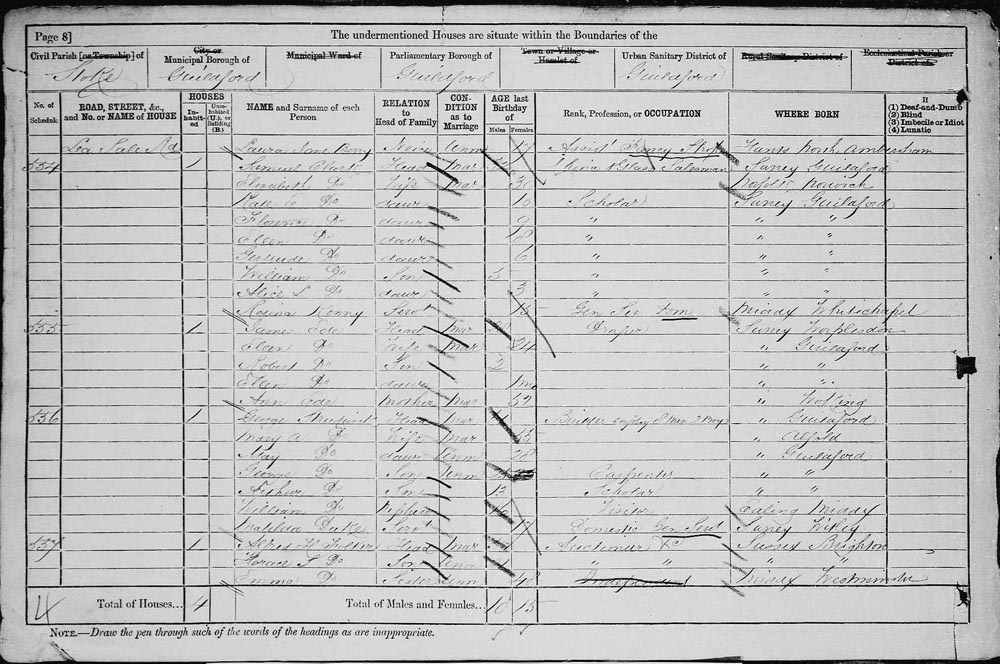 Page 8] The undermentioned Houses are situate within the Boundaries of the
Civil Parish [or Township] of City or Municipal Borough of Municipal Ward of Parliamentary Borough of Town or Village or Hamlet of Urban Sanitary District of Rural Sanitary District of Ecclesiastical Parish or District of
Stoke Guildford Guildford Guildford
No. of Schedule ROAD, STREET, &c., and No. or NAME of HOUSE HOUSES In-habit-ed Unin-habited (U.), or Building (B.) NAME and Surname of each Person RELATION to Head of Family CON-DITION as to Marriage AGE last Birthday of Males Females Rank, Profession, or OCCUPATION WHERE BORN If (1) Deaf-and-Dumb (2) Blind (3) Imbecile or Idiot (4) Lunatic
Laura Jane Berry Niece Unm 17 Assist Fancy Hants North
534 1 Samuel Head Mar China & Glass Salesman Surrey Guildford
Elizabeth Do Wife Mar 30 Norwich
Kate E Do daur 10 Scholar Surrey Guildford
Florence Do daur 9 " " "
Ellen Do daur 8 " " "
Gertrude Do daur 6 " " "
William Do Son 5 " " "
Alice S Do daur 3 " " "
Rosina Kenny Servt 15 Gen Ser Dom Middx Whitechapel
535 1 James Ede Head Mar Draper Surrey Worplesdon
Ellen Do Wife Mar 24 " Guildford
Robert Do Son 2 " "
Ellen Do daur " "
Ann Ede Mother Mar 57 " Woking
536 1 George Head Mar Builder employ 8 Men 2 Boys " Guildford
Mary A Do Wife Mar 55 " Alfold
May Do daur Unm 26 " Guildford
George Do Son Unm Carpenter " "
Arthur Do Son 13 Scholar " "
William Do Nephew Visitor Ealing Middx
Matilda Duke Servt 17 Domestic Gen Servt Surrey Witley
537 1 Head Mar Auctioneer Sussex Brighton
Horace S Do Son Unm " " "
Emma Do Sister Unm 48 Independent Middsex Westminster
4 Total of Houses... 4 Total of Males and Females... 10 15
NOTE.—Draw the pen through such of the words of the headings as are inappropriate.